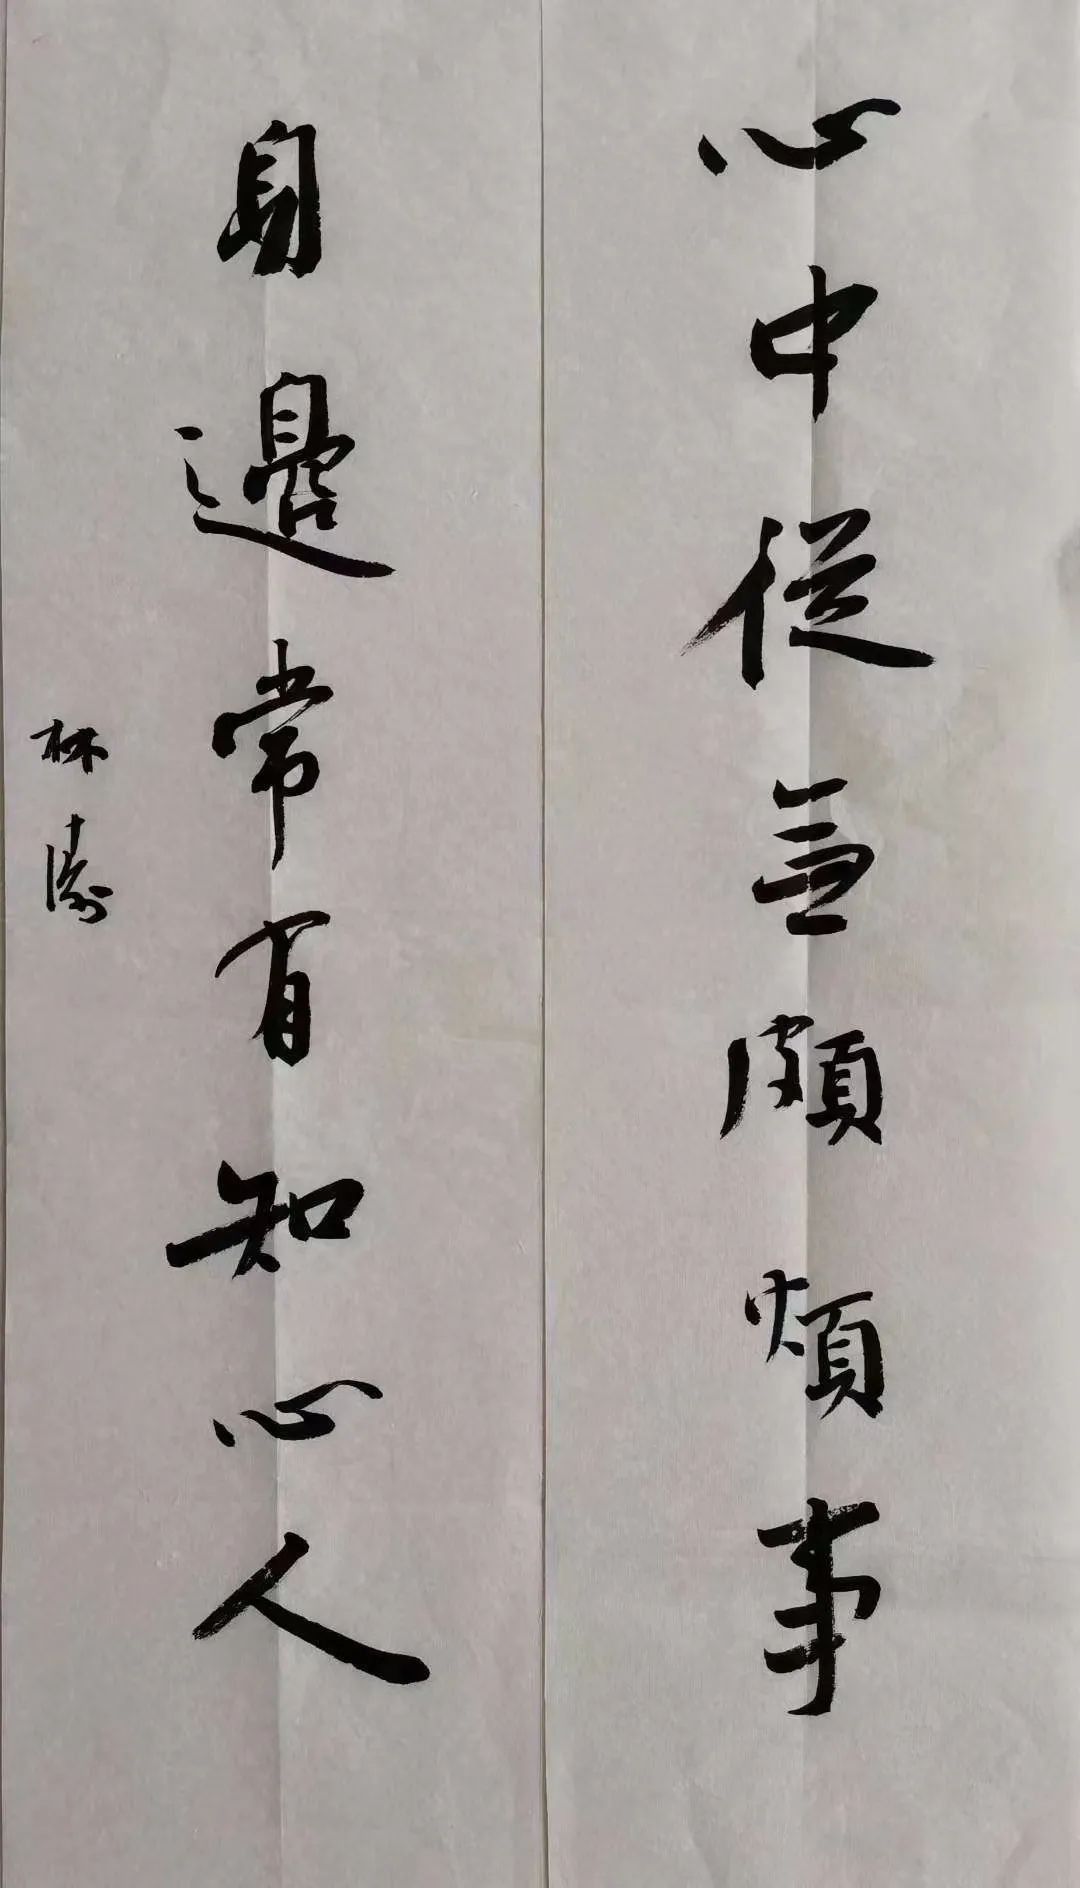 心中從無頗煩事
身邊常有知心人
林濤